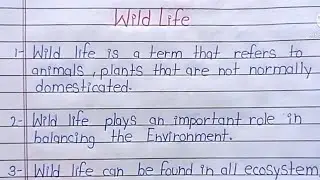 Wild Life
1- Wild life is a term that refers to
animals, plants that are not normally
domesticated.
2- Wild life plays an important role in
balancing the Environment.
3- Wild life can be found in all ecosystem